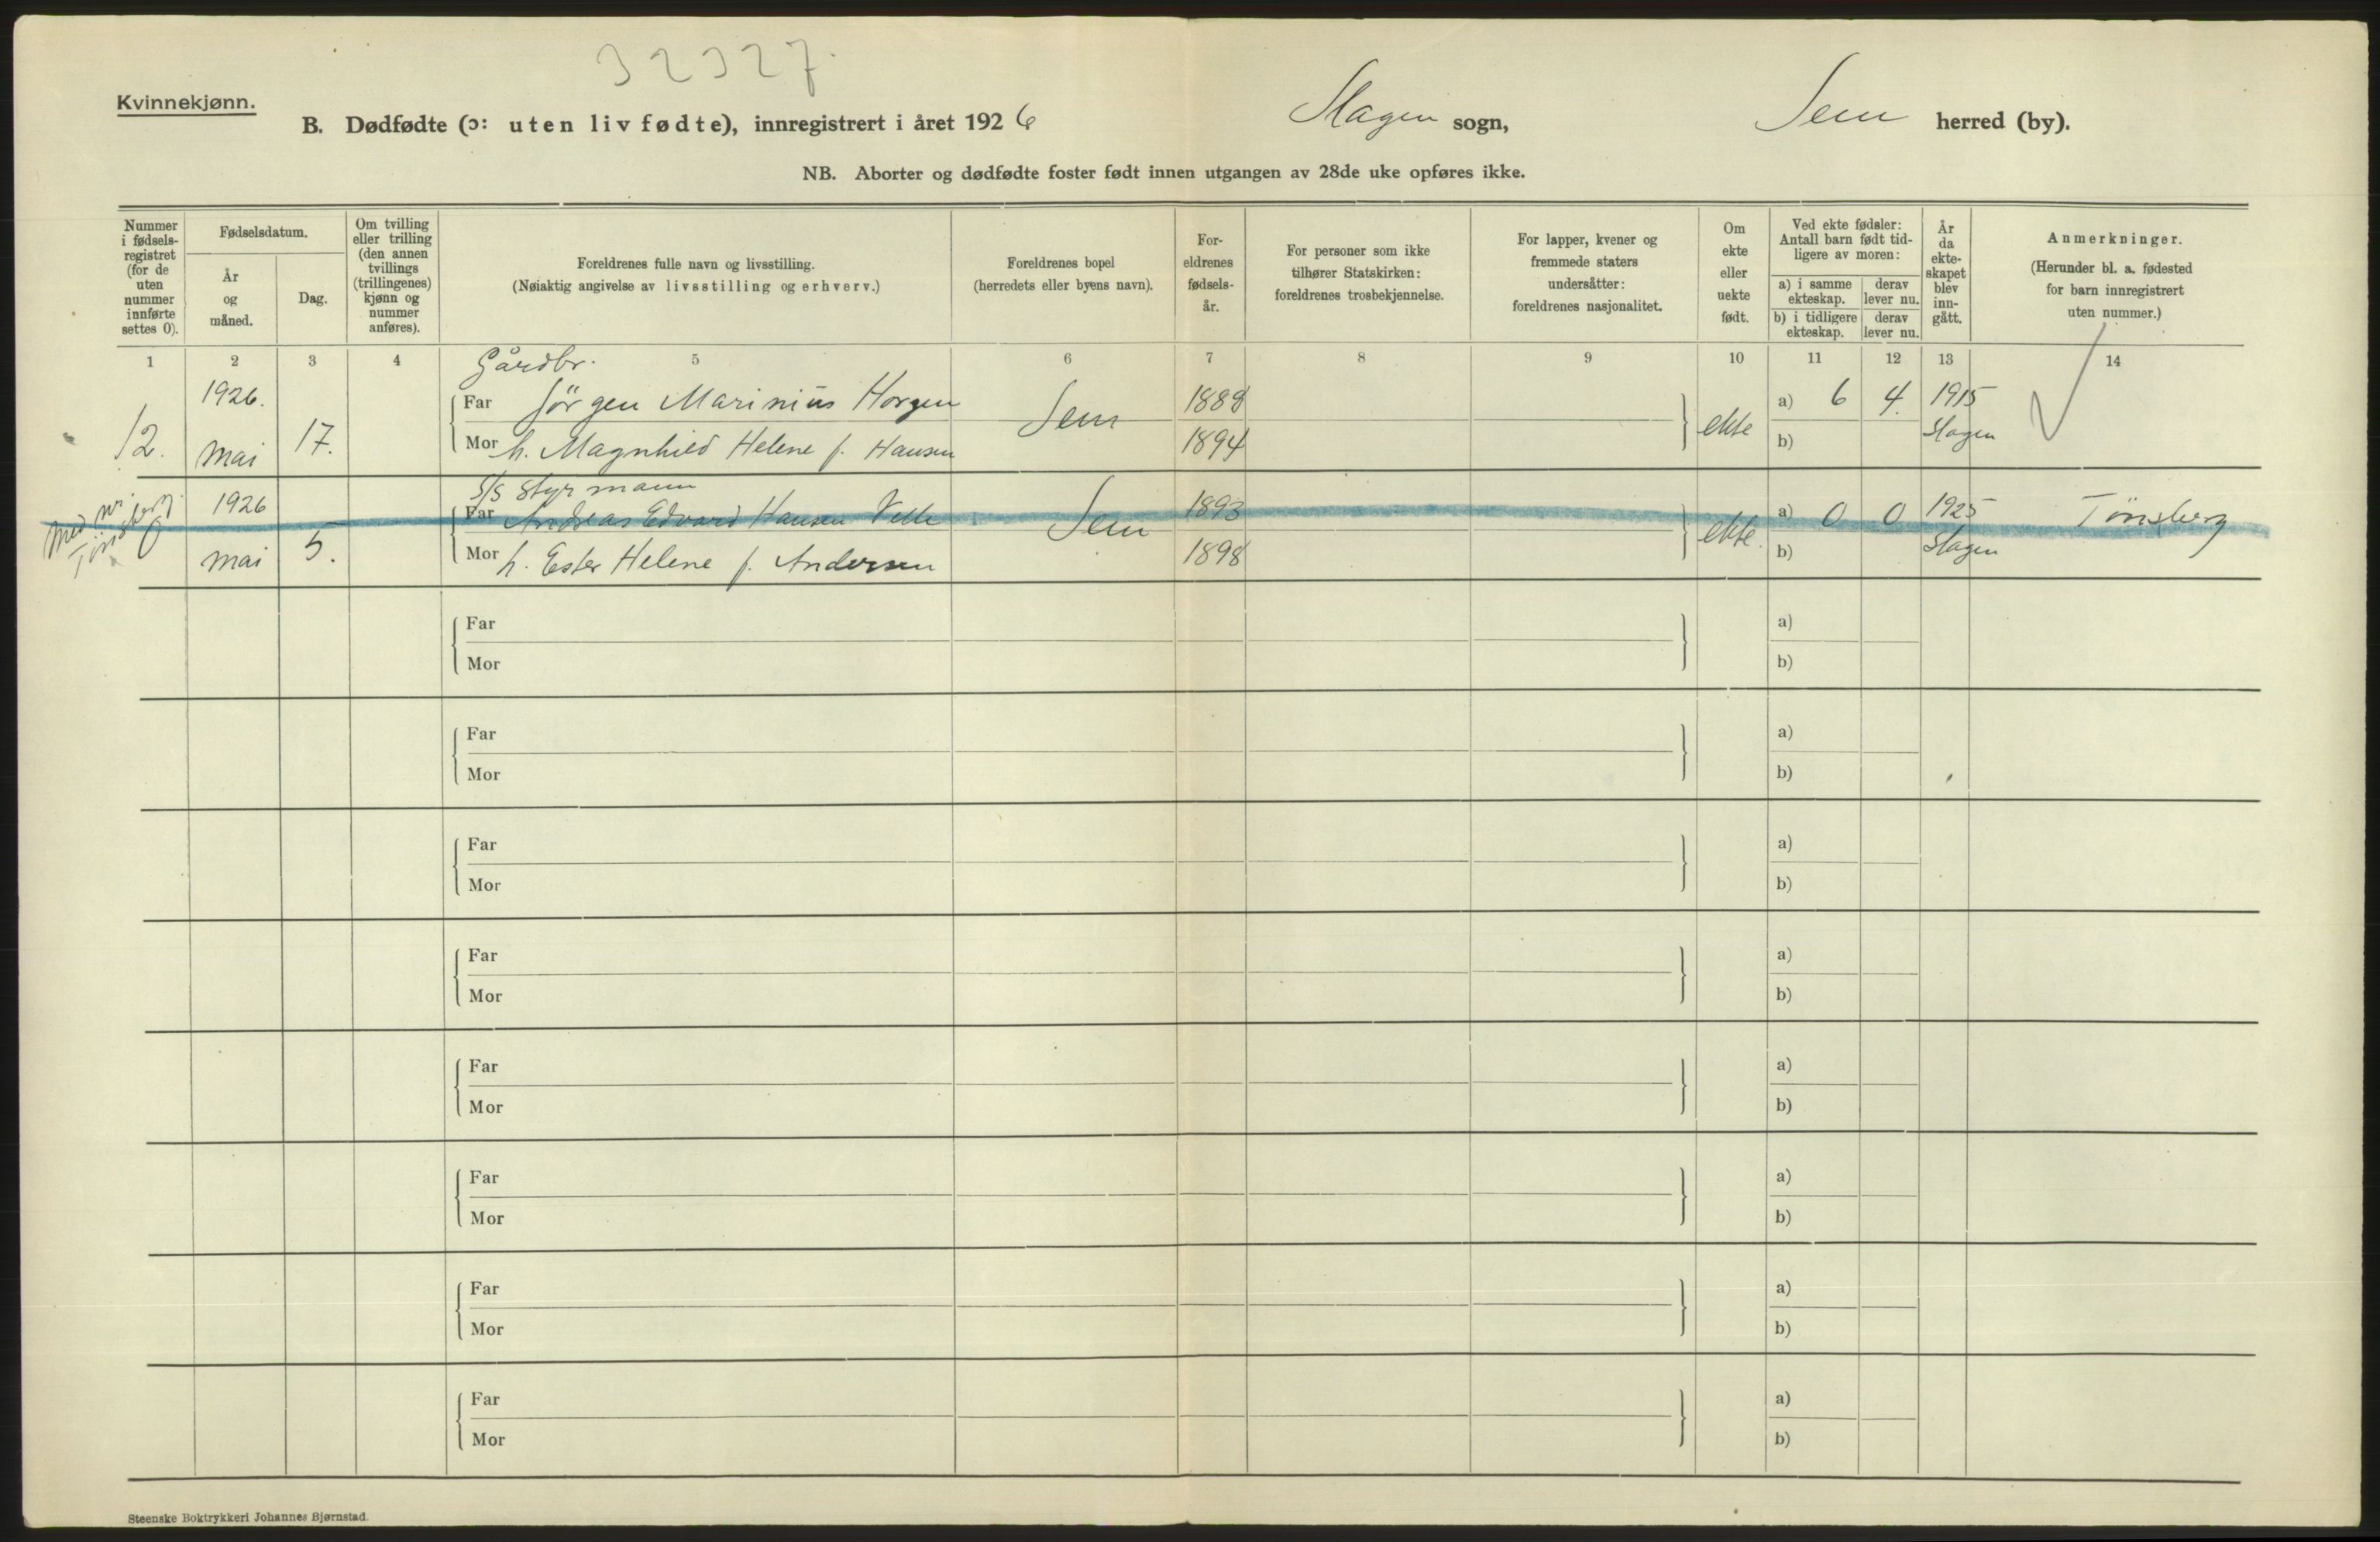 32327.
Kvinnekjønn.
B. Dødfødte (ɔ: uten liv fødte), innregistrert i året 1926
Slagen sogn,
Sem herred (by).
NB. Aborter og dødfødte foster født innen utgangen av 28de uke opføres ikke.
Nummer
i fødsels-
registret
(for de
uten
nummer
innførte
settes 0).
Fødselsdatum.
År
og
måned.
Dag.
Om tvilling
eller trilling
(den annen
tvillings
(trillingenes)
kjønn og
nummer
anføres).
Foreldrenes fulle navn og livsstilling.
(Nøiaktig angivelse av livsstilling og erhverv.)
Foreldrenes bopel
(herredets eller byens navn).
For-
eldrenes
fødsels-
år.
For personer som ikke
tilhører Statskirken:
foreldrenes trosbekjennelse.
For lapper, kvener og
fremmede staters
undersåtter:
foreldrenes nasjonalitet.
Om
ekte
eller
uekte
født.
Ved ekte fødsler:
Antall barn født tid-
ligere av moren:
a) i samme
ekteskap.
derav
lever nu.
b) i tidligere
ekteskap.
derav
lever nu.
År
da
ekte-
skapet
blev
inn-
gått.
Anmerkninger.
(Herunder bl. a. fødested
for barn innregistrert
uten nummer.)
1 2 3 4 5 6 7 8 9 10 11 12 13 14
Gårdbr.
1926. Far Jörgen Marinius Horgen 1888 a) 6 4. 1915
12. mai 17. Mor h. Magnhild Helene f. Hansen Sem 1894 ekte b) Slagen
S/S Styrmann
med nr.
Tönsberg
1926 Far Andreas Edvard Hansen 1893 a) 0 0 1925 Tönsberg
0 mai 5. Mor h. Ester Helene f. Andersen Sem 1898 ekte. b) Slagen
Far a)
Mor b)
Far a)
Mor b)
Far a)
Mor b)
Far a)
Mor b)
Far a)
Mor b)
Far a)
Mor b)
Far a)
Mor b)
Far a)
Mor b)
Steenske Boktrykkeri Johannes Bjørnstad.